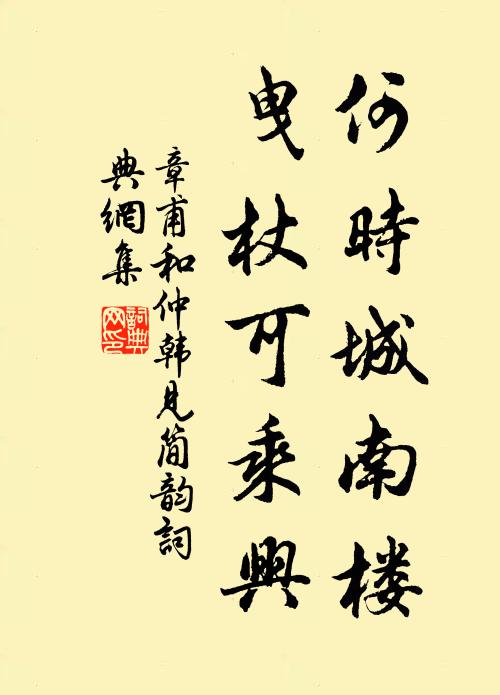 何時城南楼
曳杖可乘興
章甫和仲韩見简韵詞
典網集
詞典网印